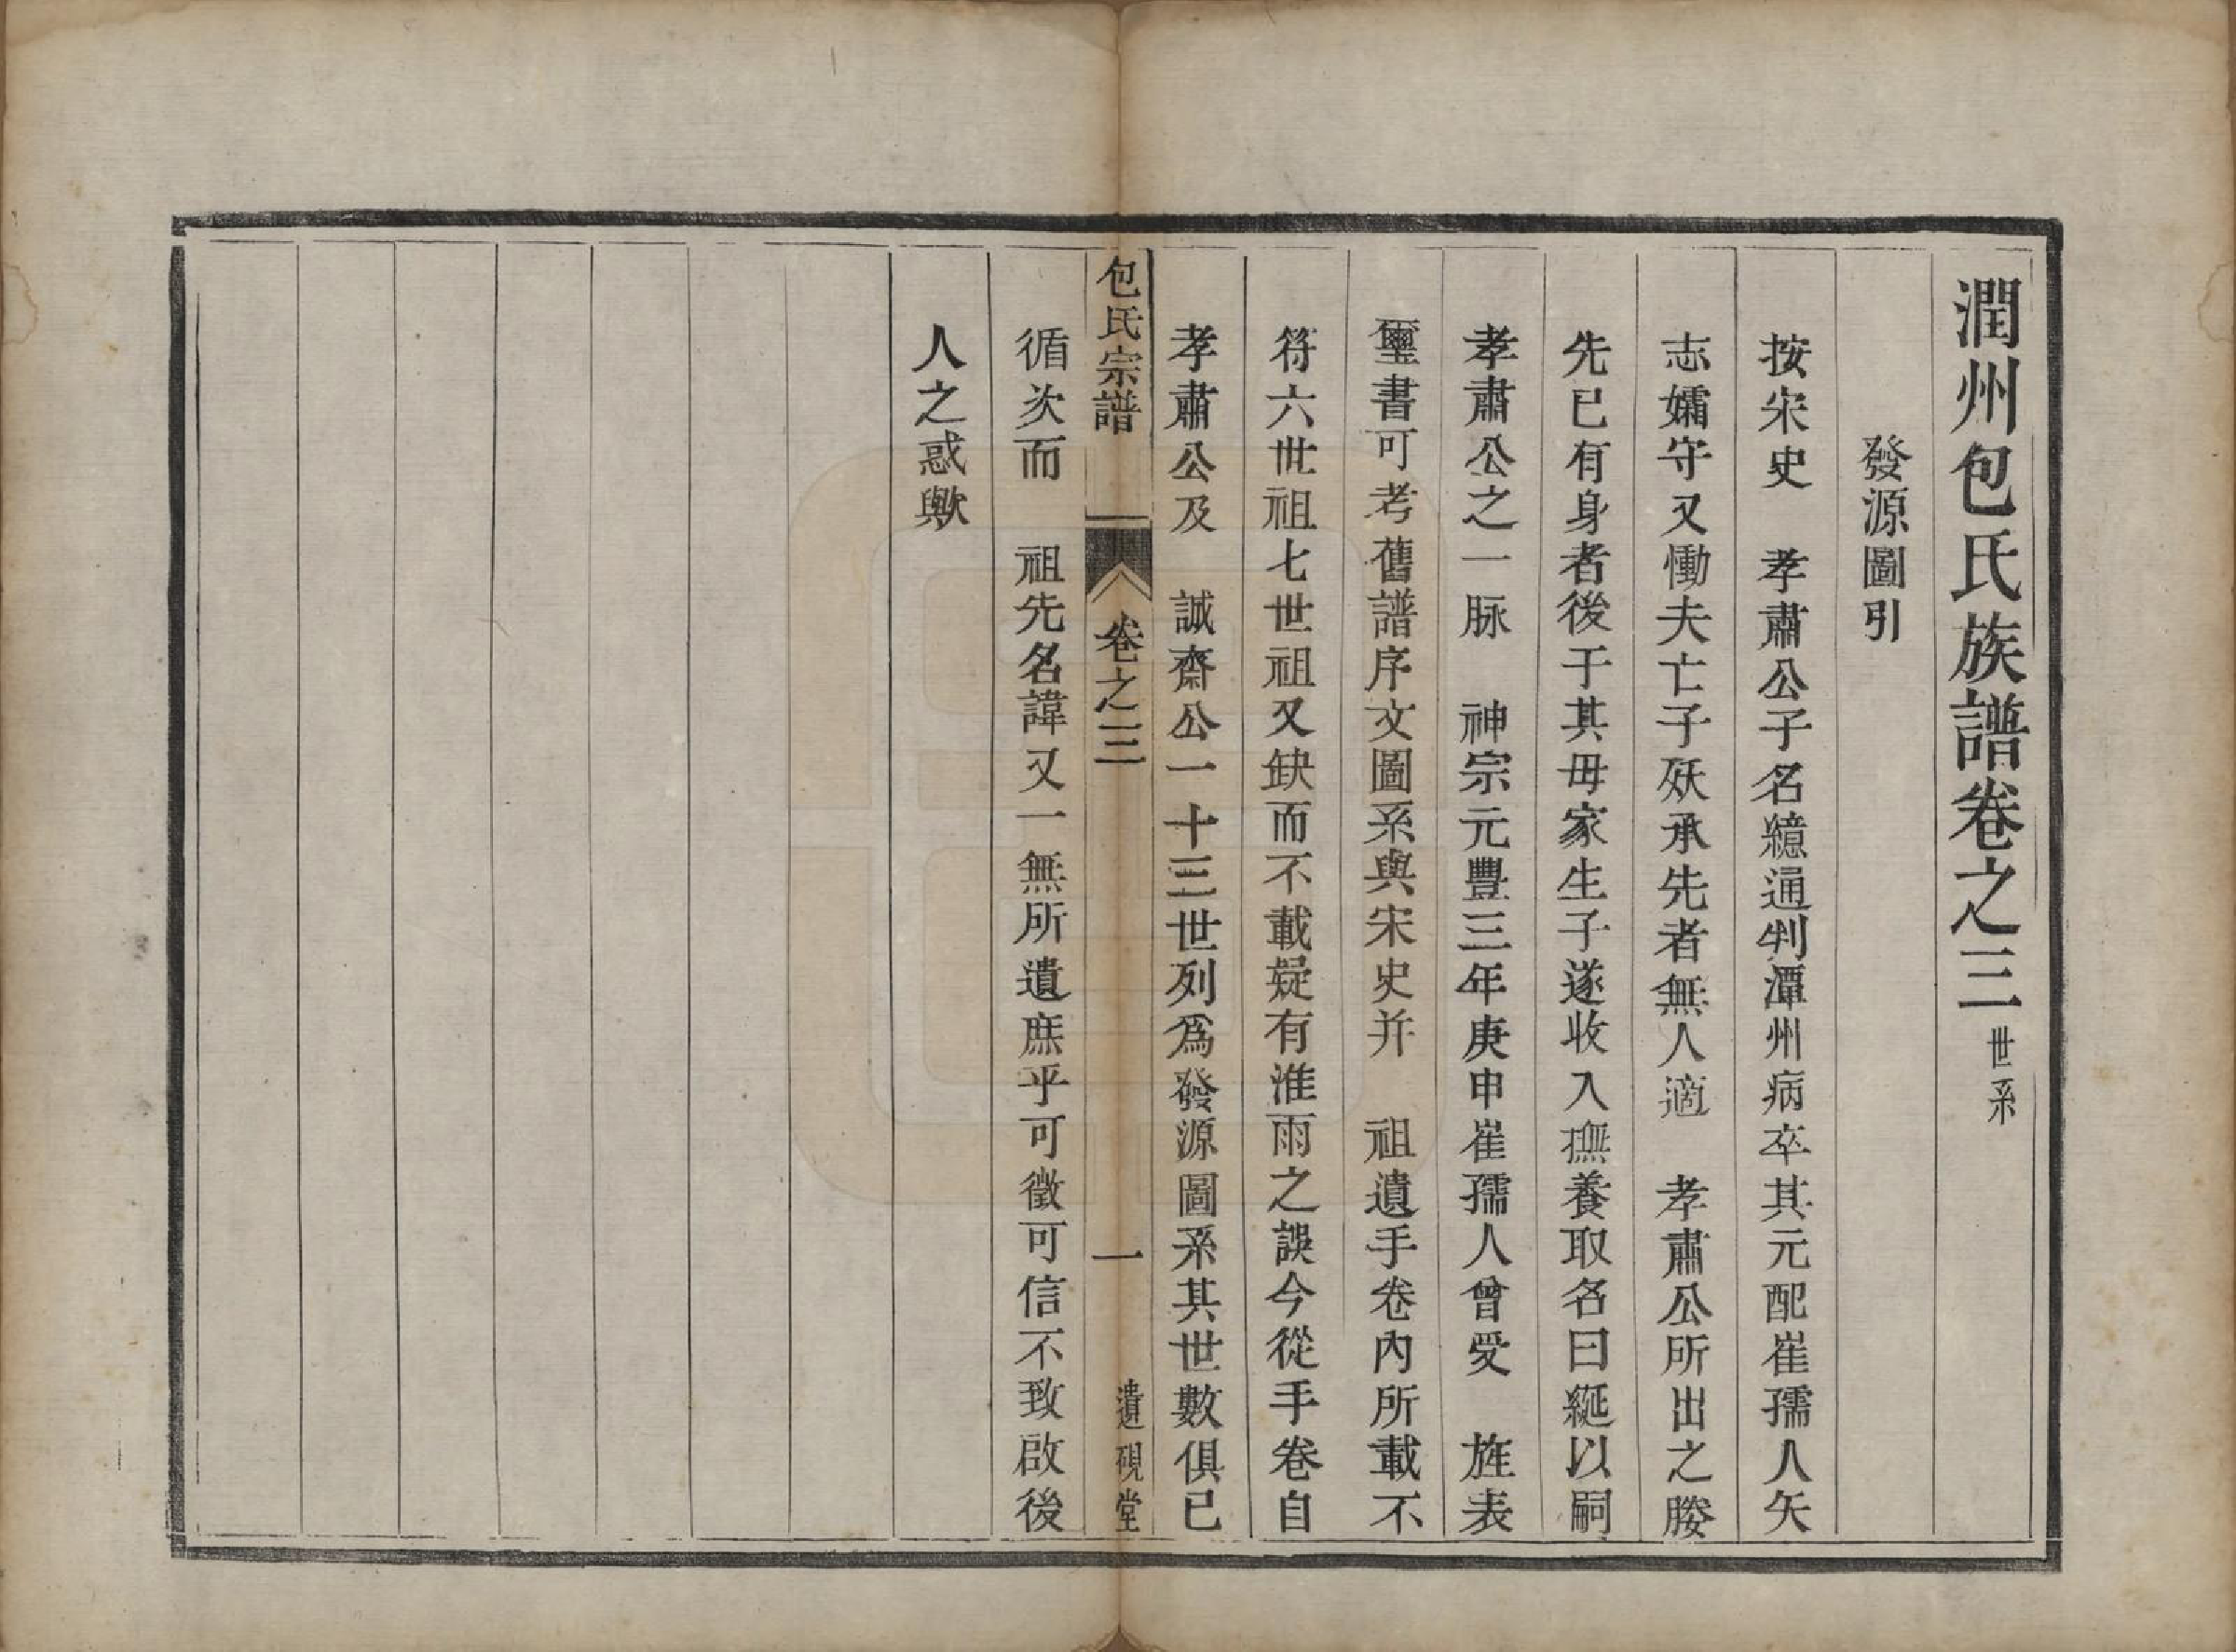 潤州包氏族譜卷之三 世系
發源圖引
按宋史　孝肅公子名繶通判潭州病卒其元配崔孺人矢
志孀守又慟夫亡子殀承先者無人適　孝肅公所出之媵
先已有身者後于其毋家生子遂收入撫養取名曰綖以嗣
孝肅公之一脉　神宗元豐三年庚申崔孺人曾受　旌表
璽書可考舊譜序文圖系與宋史并　祖遺手卷內所載不
符六世祖七世祖又缺而不載疑有淮雨之誤今從手卷自
孝肅公及　誠齋公一十三世列爲發源圖系其世數俱已
包氏宗譜　卷之三　一　遺硯堂
循次而　祖先名諱又一無所遺庶乎可徵可信不致啟後
人之惑歟